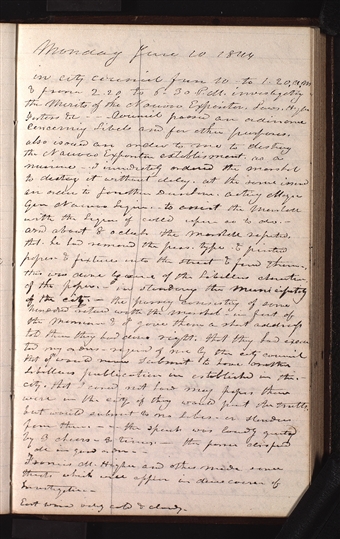 Monday June 10 1844
in city council from 10 to 1.20, P.M
& from 2.20 to 6:30 P.M. investigating
the Merits of the Nauvoo Expositor, Laws, Higbee
Fosters &c - Council passed an ordinance
concerning Libels and for other purposes.
also issued an order to me to destroy
the Nauvoo Expositor establishment as a
nuisance - I immediately ordered the marshal
to destroy it without delay. at the same time issued
an order to Jonathan Dunham acting Major
Gen Nauvoo Legion to assist the Marshal
with the Legion if called upon so to do.-
and about 8 o clock the Marshall reported
that he had removed the press. type - & printed
paper - & fixtures into the street & fired them.
this was done because of the libellous character
of the paper - in slandering the municipality
of the city - the posse consisting of some
hundred returned with the marshal - in front of
the Mansion & I gave them a short address
told them they had done right. that they had executed
my orders required of me by the city council
that I would never submit to have another
libellous publication established in this
city. that I cared not how many papers there
were in the city if they would print the truth
but would submit to no libels or slanders
from them. - - the speech was loudly greeted
by 3 cheers - 3 times - the posse dispersed
all in good order.-
Francis M. Higbee and others made some
threats
East wind very cold & cloudy.